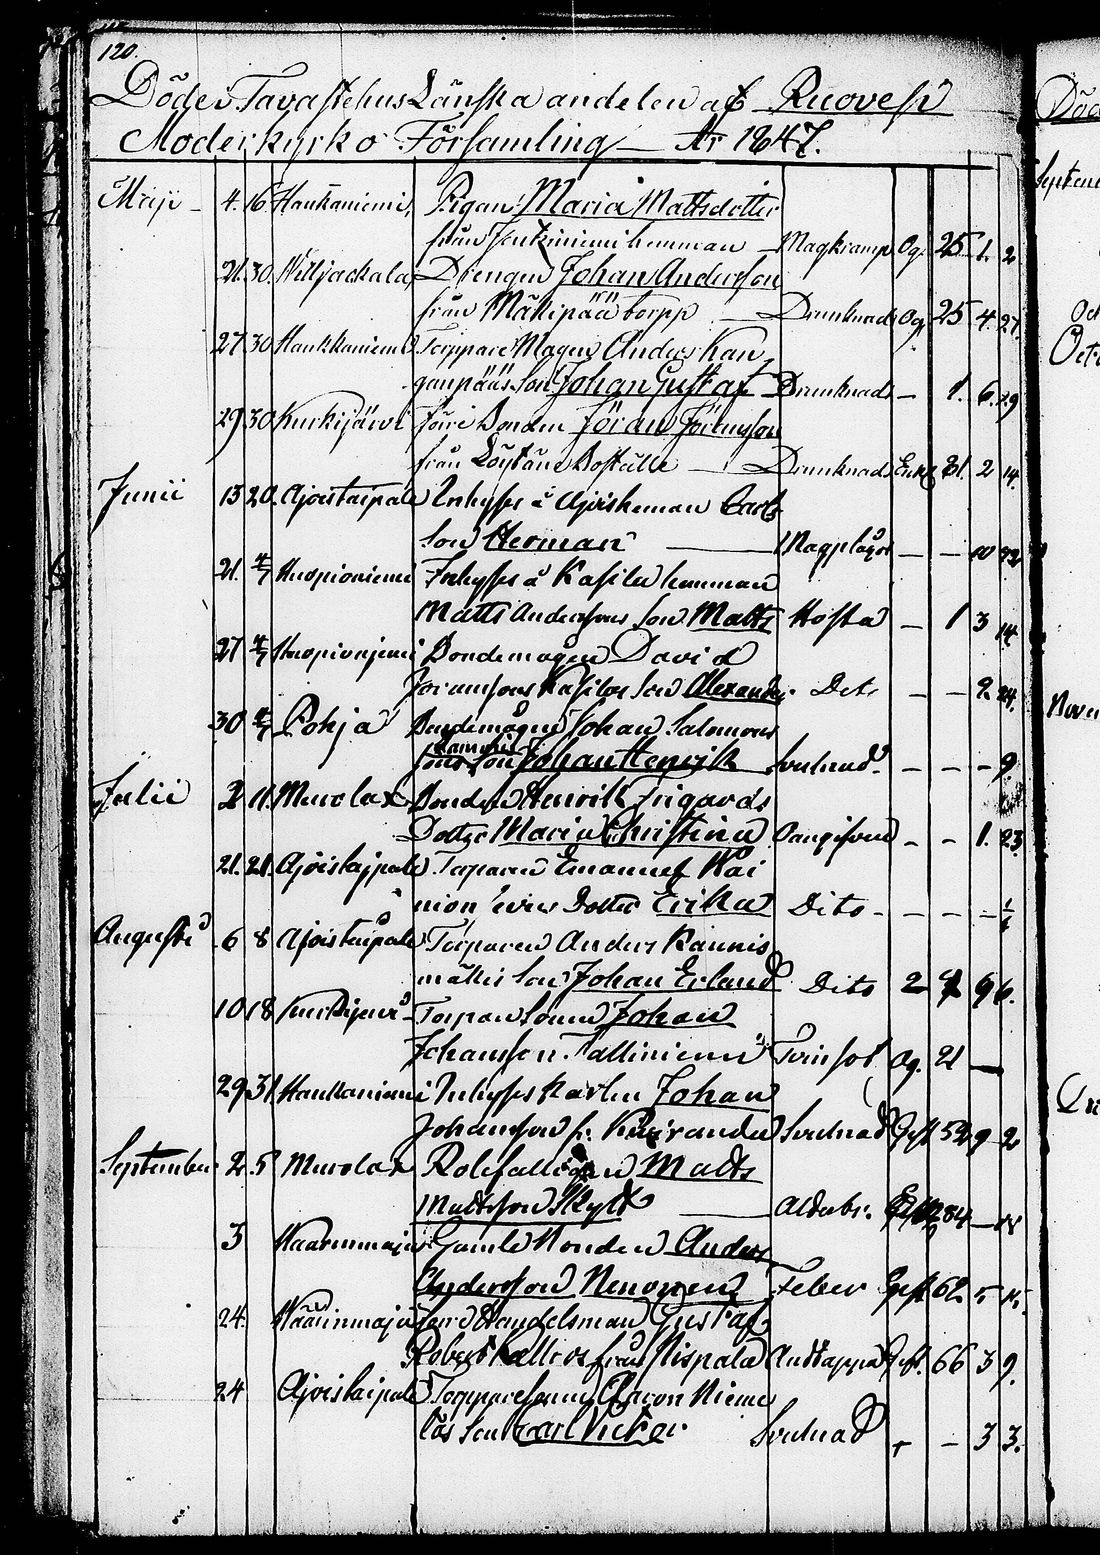 120.
Döde i Tavastehus Länska andelen af Ruovesi
Moderkyrko Församling År 1847.
Maji 4. 16 Haukaniemi, Pigan Maria Mattsdotter
från hemman Magkramp Og. 25 1. 2
21. 30. Williackala Drengen Johan Andersson
från Mäkipää torpp Drunknad Og 25 4 27.
27 30 Haukkaniemi Torppare Magen Anders Kan
gaspääs Son Johan Gustaf Drunknad — 1. 6. 29
29 30 Kurkijärvi Förre Bonden Jöran Göransson
från Löytäne Boställe Drunknad Enkl 81. 2 14.
Junii 13 20. Ajostaipale Inhyses å hemman Carls
Son Herman Magplågor — — 10 22
21. 4/7 Kuopioniemi Inhyses å Kasila hemman
Matts Anderssons Son Matts Hosta — 1 3 14
27 4/7 Kuopioniemi Bondemågen David
Göranssons Kasilas Son Alexander. Dito — — 2 24.
30 4/7 Pohja Bondemågen Johan Salomons
sons Son Johan Henrik Svulnad. — — — 9.
Julii 2 11. Murolax Bonden Henrik Frigårds
Dotter Maria Christina Oangifven — — 1. 23.
21. 21. Ajoistaipale Torparen Emanuel Kai
Dotter Erika Dito — — — —
Augusti 6 8 Ajostaipale Torparen Anders Kaunis
mäkis Son Johan Erland Dito 2 9 6.
10 18 Kurkijärvi Torpare Sonen Johan
Johansson Talliniemi Tvinsot Og. 21 —
29 31. Haukaniemi Inhyses Karlen Johan
Johansson fr. Svulnad Gift 52 9 2
September 2. 5 Murolax Rotefattigen Matts
Mattsson Skytt Ålderbr. 84 — 18
3 Waarinmaja Gamle Bonden Anders
Andersson Nenonen Feber Gift 62 5 15.
24. Wäärinmaja Förre Handelsman Gustaf
Robert från Rispala Andtäppa Gift. 66 3 9.
24 Ajoistaipale Torpparesonen Aron Nieme
läs Son Carl Victor Svulnad — — 3 3.